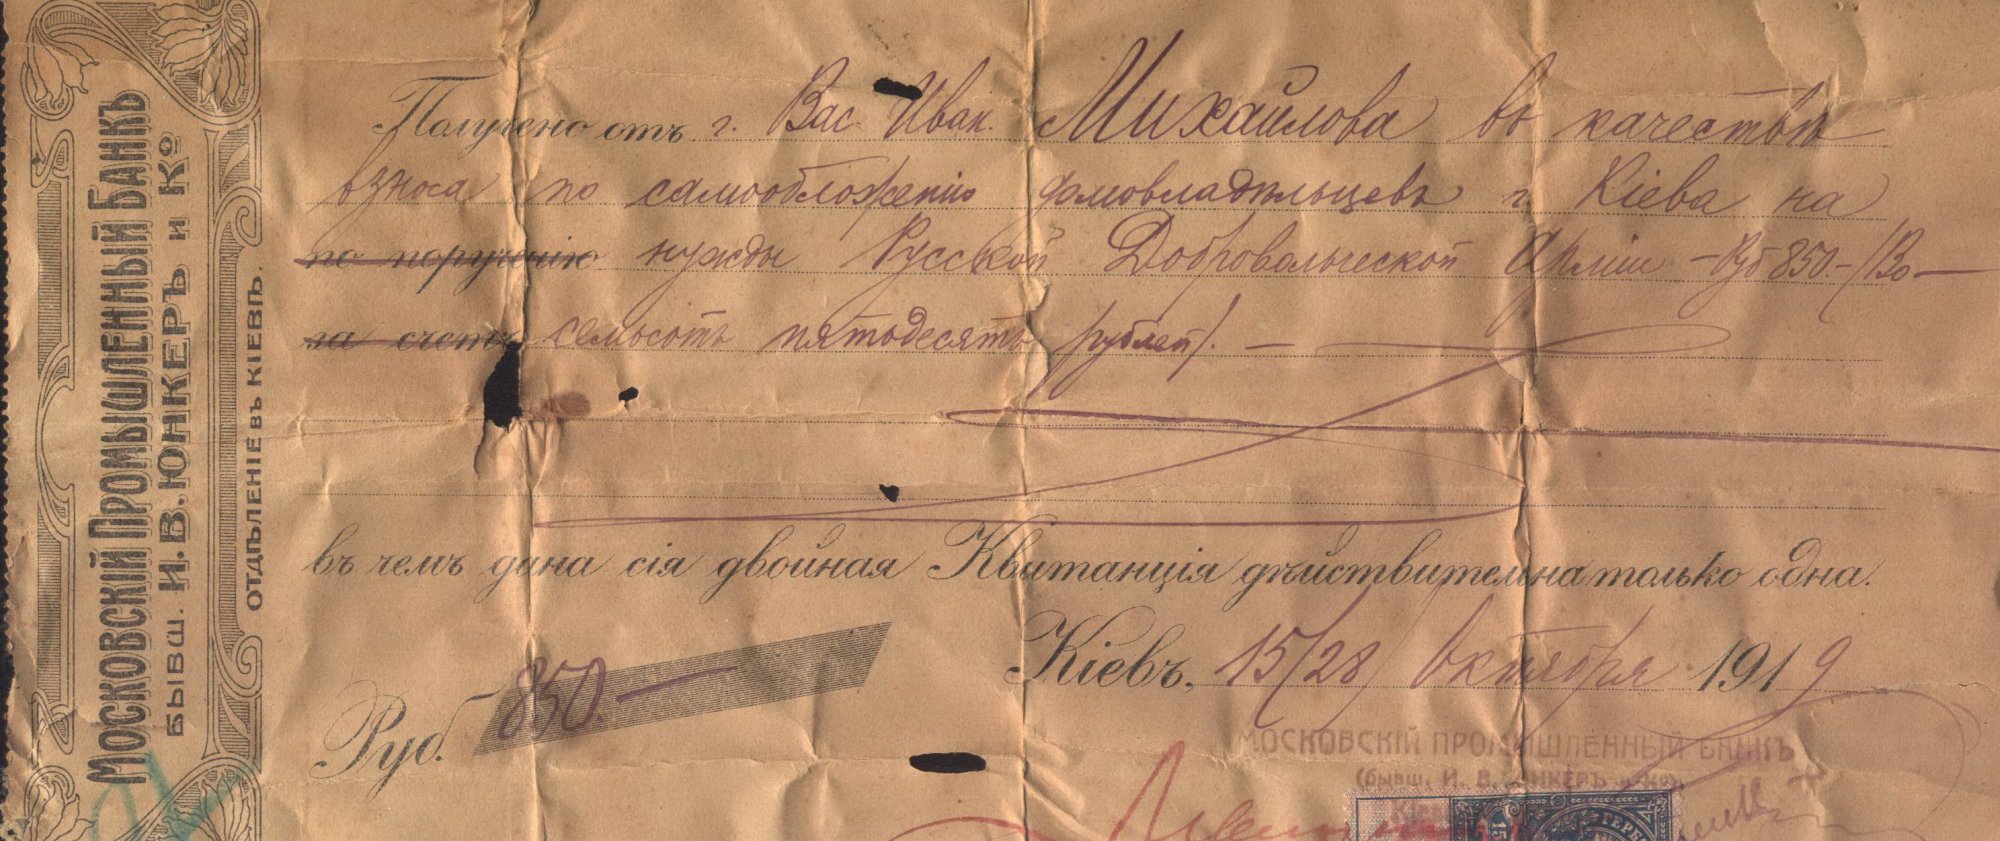 Московскій Промышленный Банкъ
бывш. И. В. Юнкеръ и Ко
Отдѣленіе въ Кіевѣ.
Получено отъ г. Вас. Иван. Михайлова въ качествѣ
взноса по самообложенію домовладѣльцевъ г. Кіева на
по порученію нужды Русской Добровольческой Арміи – Руб 850.– (Во–
за счетъ семьсотъ пятодесятъ рублей). –
въ чемъ дана сія двойная Квитанція дѣйствительна только одна.
Кіевъ, 15/28 Октября 1919
Руб. 850.–
МОСКОВСКІЙ ПРОМЫШЛЕННЫЙ БАНКЪ
(бывш. И. В. ЮНКЕРЪ и Ко).
15
ГЕРБО